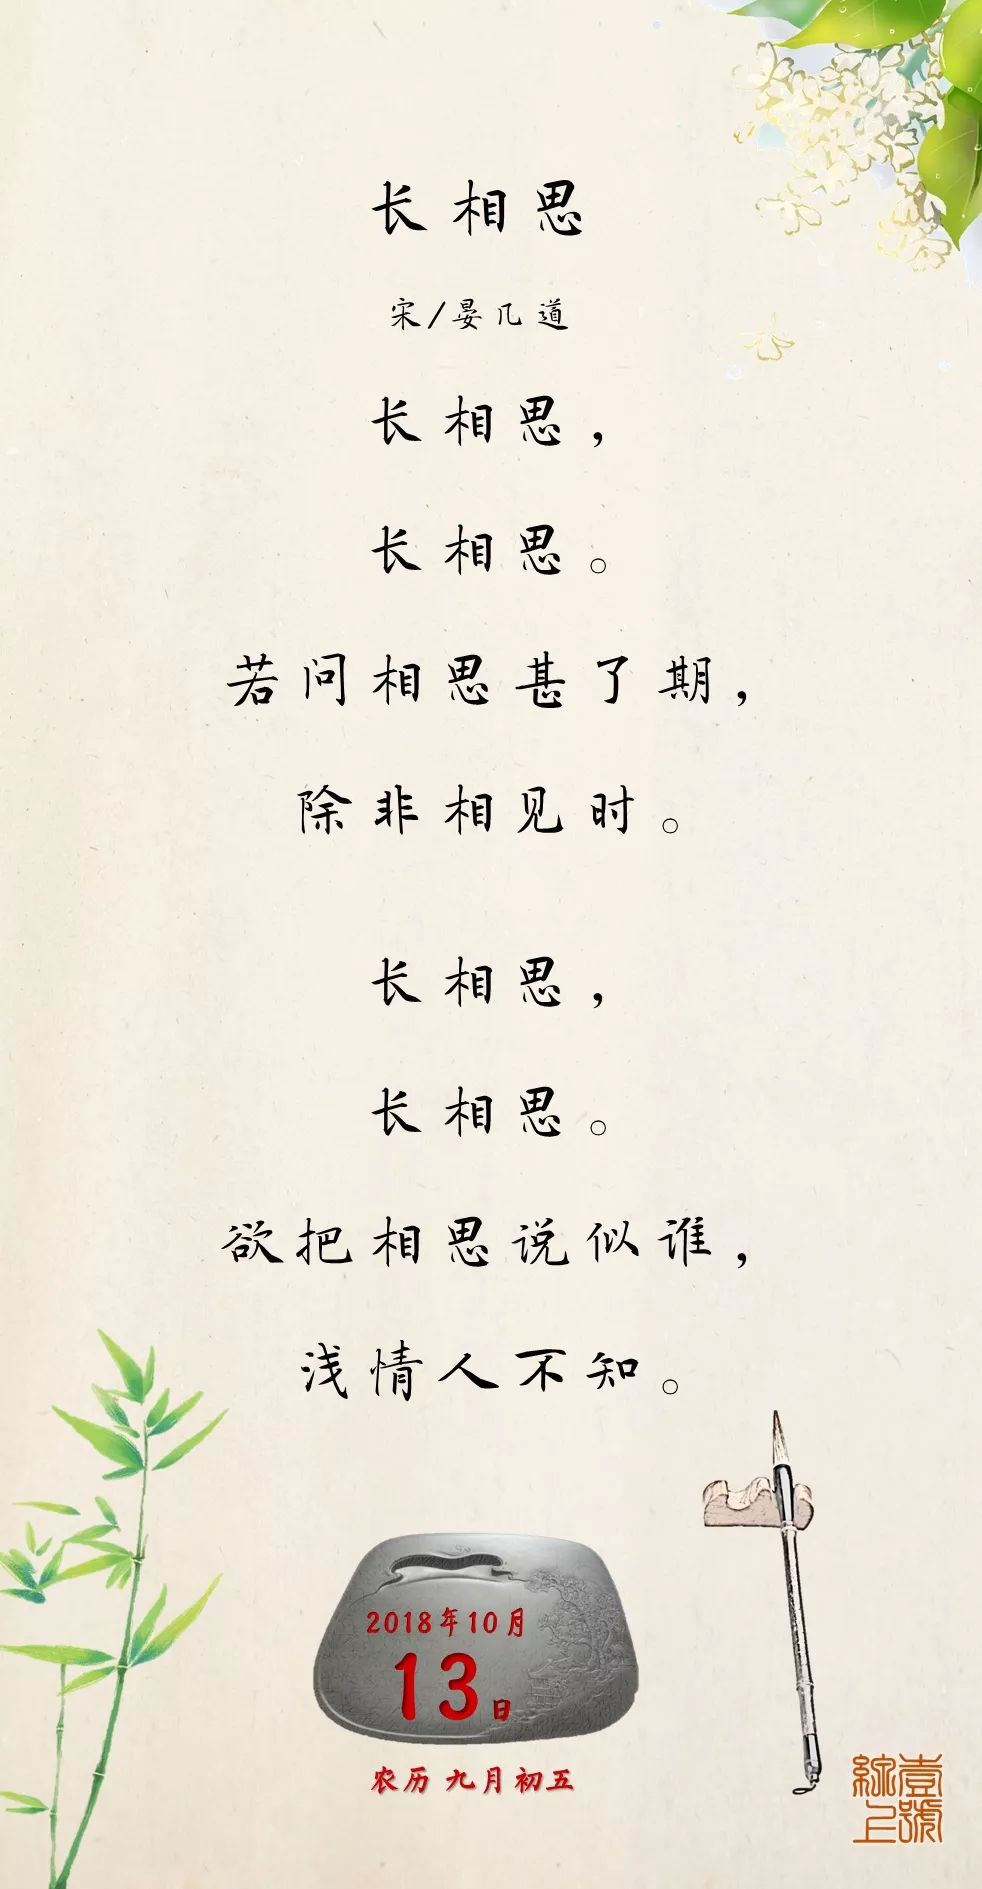 长相思
宋/晏几道
长相思，
长相思。
若问相思甚了期，
除非相见时。
长相思，
长相思。
欲把相思说似谁，
浅情人不知。
2018年10月
13日
农历 九月初五